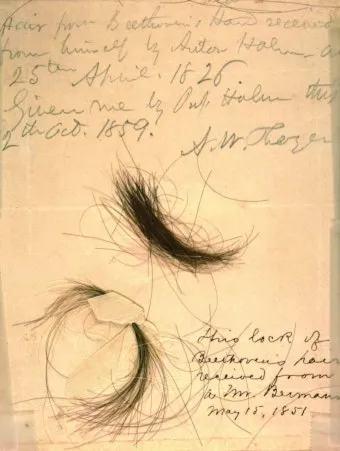 Hair from Beethoven's Hand received
from himself by Anton Halm
25ten April. 1826.
Given me by Prof. Halm this
2th Oct. 1859.
A. W. Thayer
This lock of
Beethoven's hair
received from
a Mr. Bermann
May 15, 1851